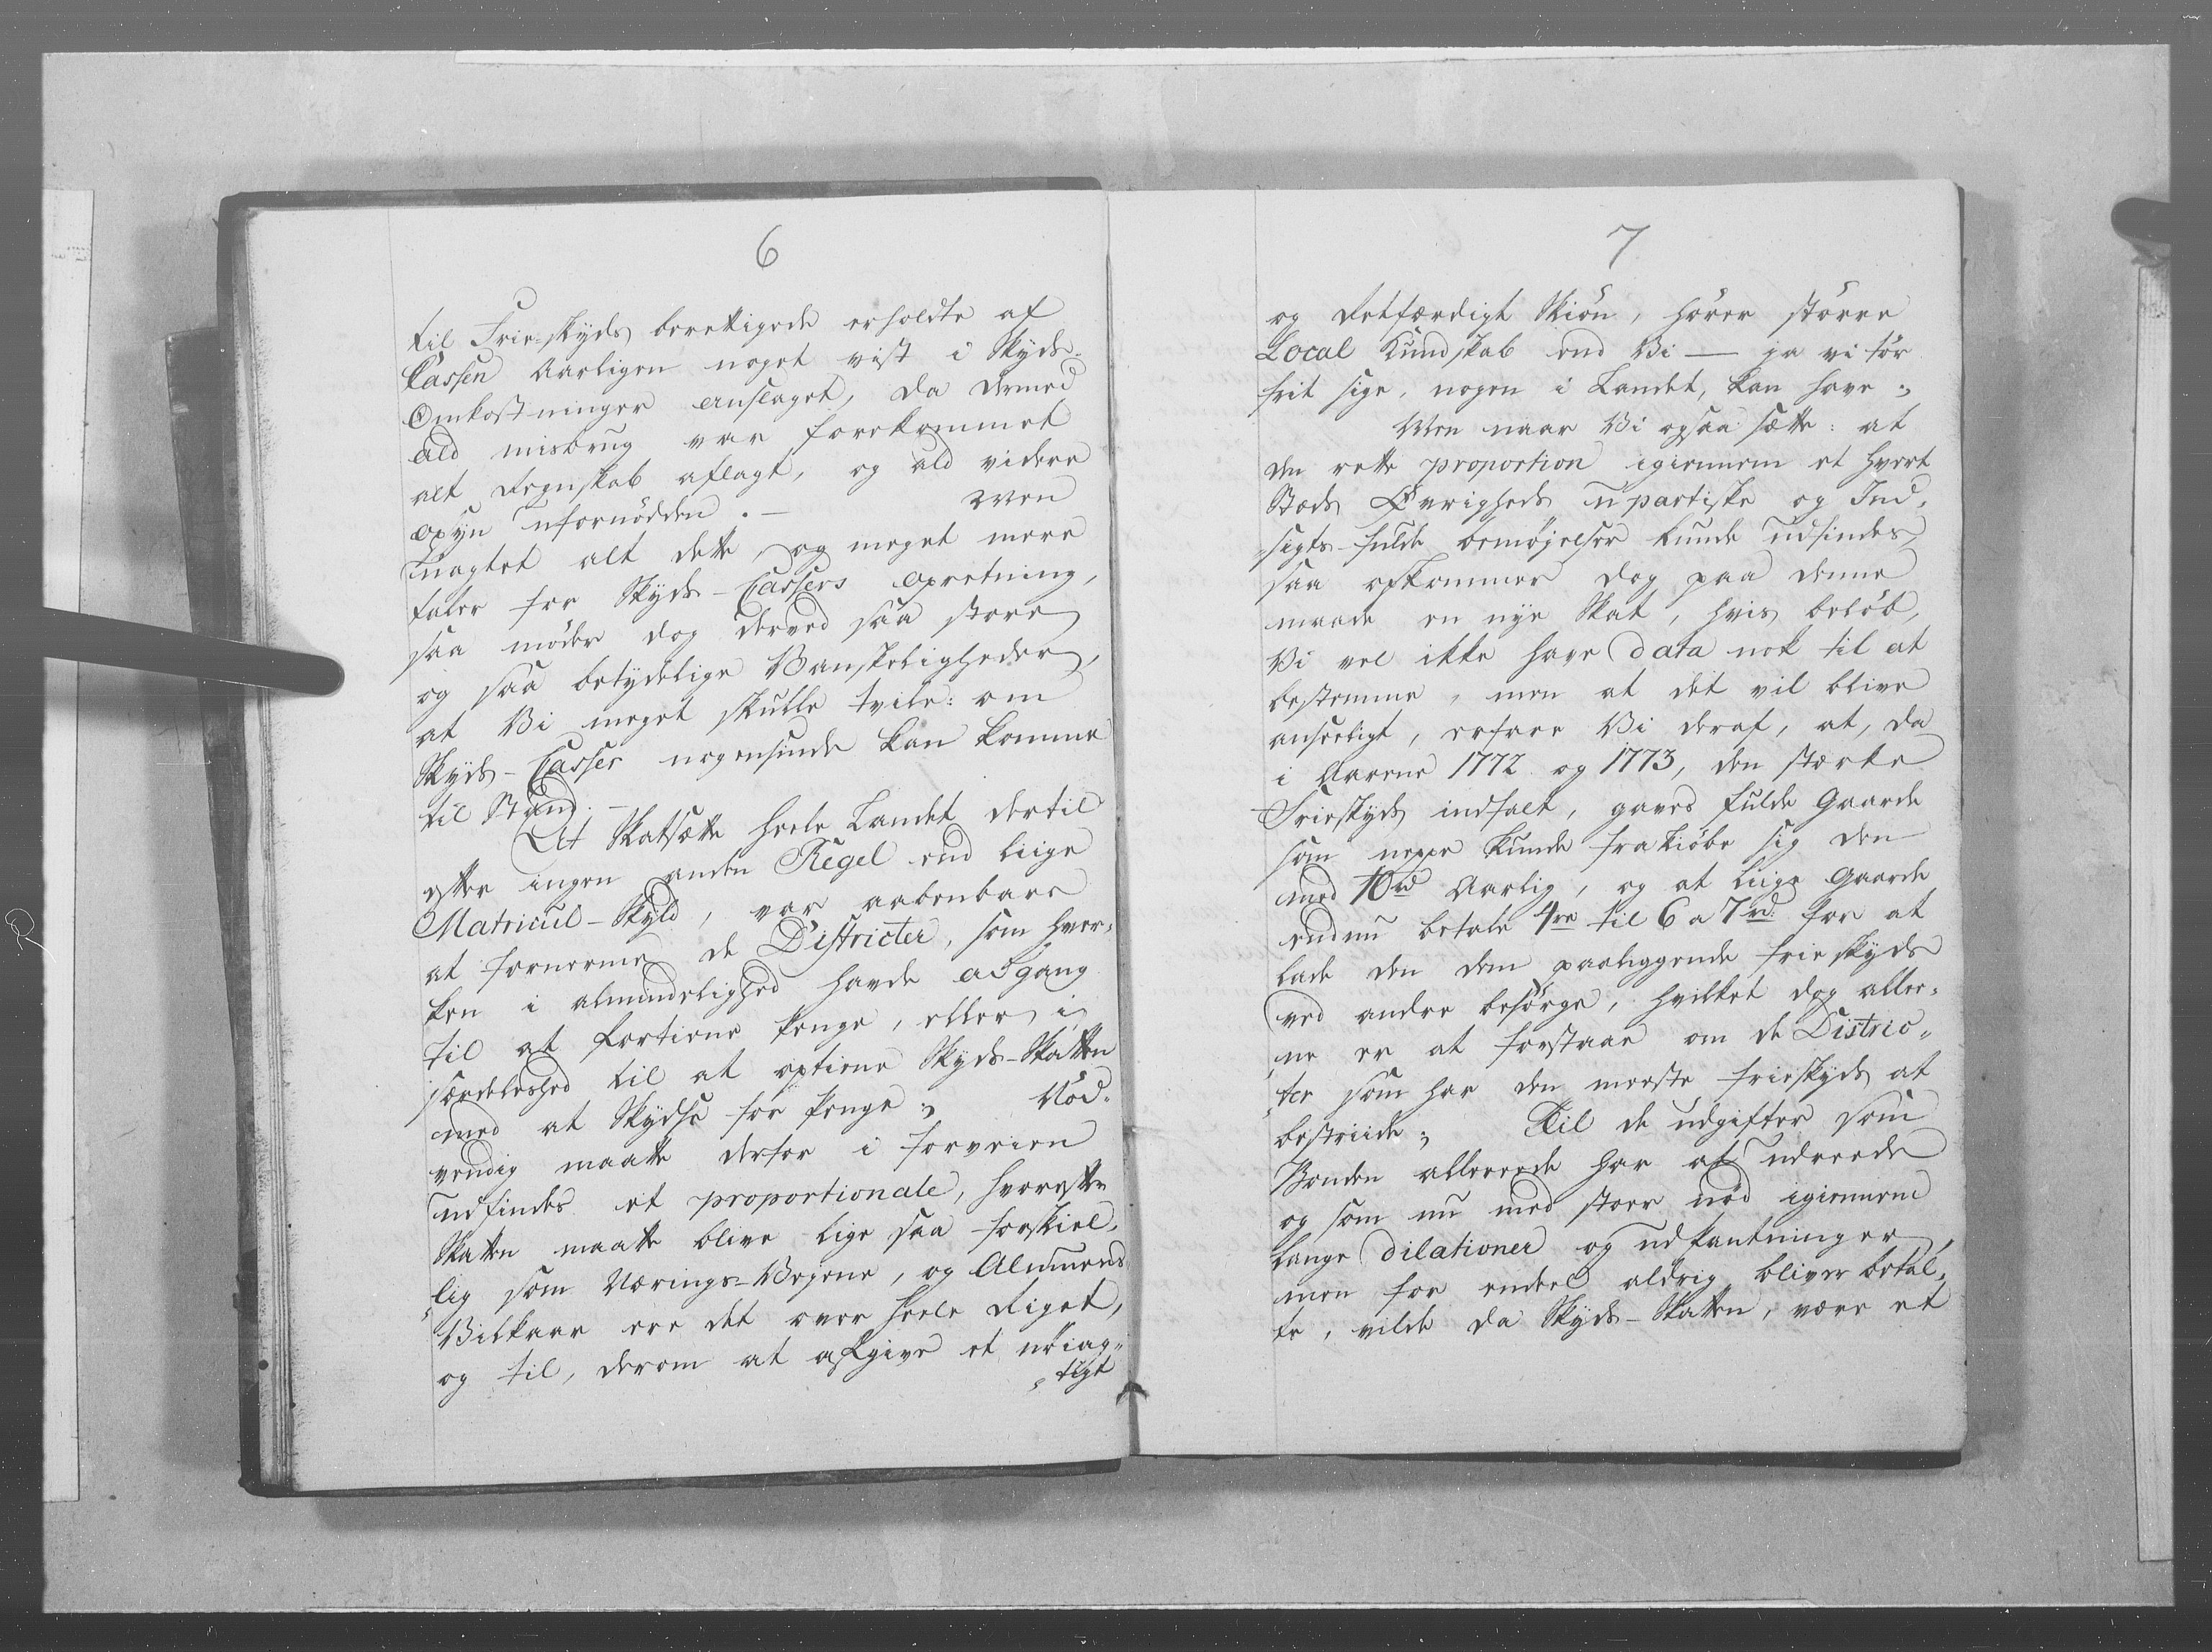 6
til Frie-skyds berettigede erholdte af
Cassen Aarligen noget vist i Skyds-
Omkostninger anslaget, da dermed
ald misbrug var forekommet
alt Regnskab aflagt, og ald videre
opsyn ufornödden. — Men
uagtet alt dette, og meget mere
taler for Skyds-Cassers Opretning,
saa möder dog derved saa store
og saa betydelige Vanskeligheder,
at Vi meget skulle tvile: om
Skyds-Casser nogensinde kan komme
til Stand. —
At Skatsætte heele Landet dertil
efter ingen anden Regel end liige
Matricul-Skyld, var aabenbare
at fornerme de Districter, som hver-
ken i almindelighed havde adgang
til at fortiene penge, eller i
særdeleshed til at optiene Skyds-Skatten
med at Skydse for penge; Nöd-
vendig maatte derfor i forveien
udfindes et proportionale, hvorefter
Skatten maatte blive lige saa forskiel-
lig som Nærings-Veyene, og Almuens
Vilkaar ere det over heele Riget,
og til, derom at afgive et nöiag-
tigt
7
og Retfærdigt Skiön, hörer större
Local Kundskab end Vi — ja vi tör
frit sige, nogen i Landet, kan have;
Men naar Vi ogsaa sætte: at
den rette proportion igiennem et hvert
Stæds Övrigheds upartiske og Ind-
sigts-fulde bemöyelser kunde udfindes,
saa opkommer dog paa denne
maade en nye Skat, hvis belöb,
Vi vel ikke have data nok til at
bestemme, men at det vil blive
anseeligt, erfare Vi deraf, at, da
i Aarene 1772 og 1773, den stærke
Frieskyds indfalt, gaves fulde Gaarde
som neppe kunde frakiöbe sig den
med 10 rd Aarlig, og at liige Gaarde
endnu betale 4re til 6 a 7 rd for at
lade den dem paaliggende frieskyds
ved andre besörge, hvilket dog alle-
ne er at forstaae om de Distric-
ter som har den meeste frieskyds at
bestriide; Til de udgifter som
Bonden allereede har at udreede
og som nu med stoer nöd igiennem
lange dilationer og udpantninger,
men for endeel aldrig bliver betal-
te, vilde da Skyds-Skatten, være et